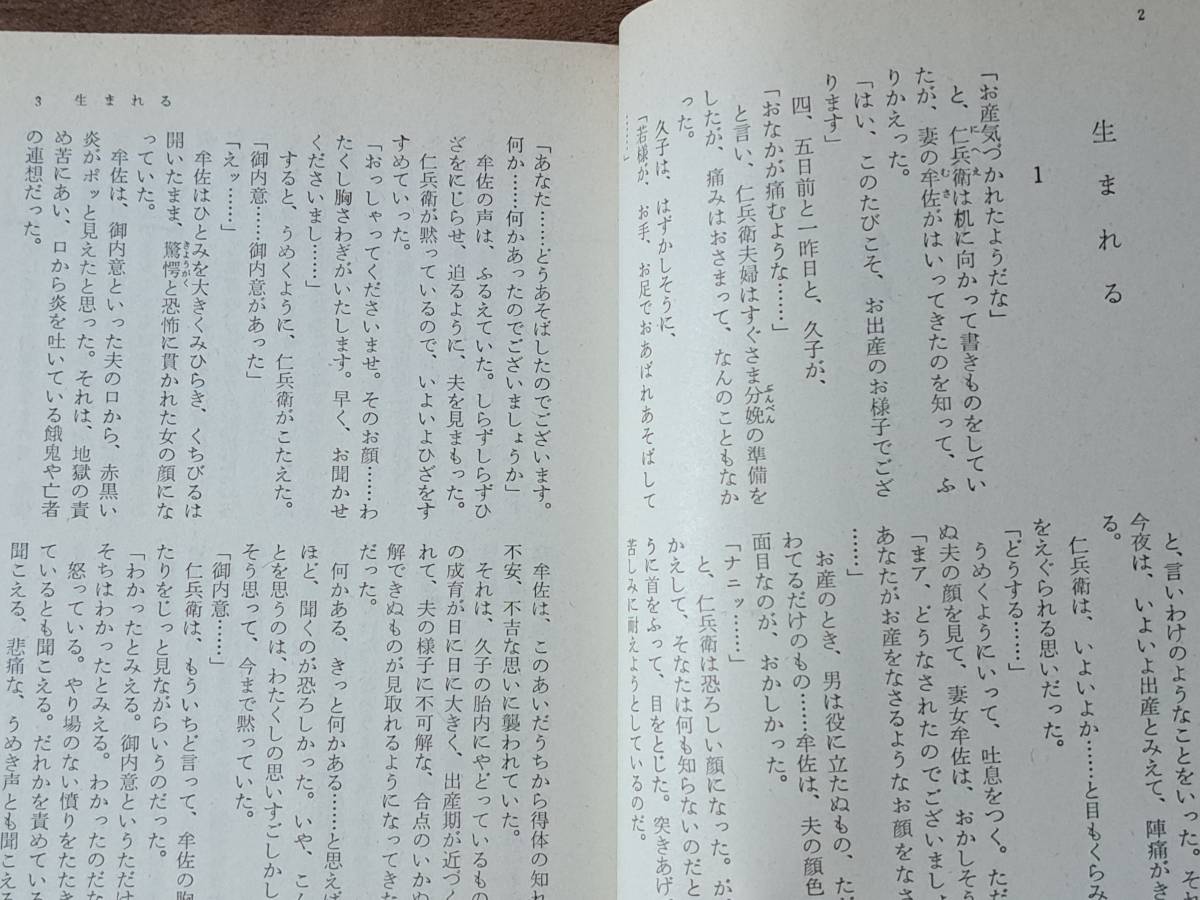 2
生まれる
1
「お産気づかれたようだな」
と、仁兵衛は机に向かって書きものをしてい
たが、妻の牟佐がはいってきたのを知って、ふ
りかえった。
「はい、このたびこそ、お出産のお様子でござ
ります」
四、五日前と一昨日と、久子が、
「おなかが痛むような……」
と言い、仁兵衛夫婦はすぐさま分娩の準備を
したが、痛みはおさまって、なんのこともなか
った。
久子は、はずかしそうに、
「若様が、お手、お足でおあばれあそばして
……」
と、言いわけのことをいった。それ
今夜は、いよいよ出産とみえて、陣痛がき
る。
仁兵衛は、いよいよか……と目もくらみ
をえぐられる思いだった。
「どうする……」
うめくようにいって、吐息をつく。ただ
ぬ夫の顔を見て、妻女牟佐は、おかしそう
「まア、どうなされたのでございましょ
あなたがお産をなさるようなお顔をなさ
……」
お産のとき、男は役に立たぬもの、ただ
わてるだけのもの……牟佐は、夫の顔色
面目なのが、おかしかった。
「ナニッ……」
と、仁兵衛は恐ろしい顔になった。が
かえして、そなたは何も知らないのだと
うに首をふって、目をとじた。突きあげ
苦しみに耐えようとしているのだ。
3 生まれる
「あなた……どうあそばしたのでございます。
何か……何かあったのでございましょうか」
牟佐の声は、ふるえていた。しらずしらずひ
ざをにじらせ、迫るように、夫を見まもった。
仁兵衛が黙っているので、いよいよひざをす
すめていった。
「おっしゃってくださいませ。そのお顔……わ
たくし胸さわぎがいたします。早く、お聞かせ
くださいまし……」
すると、うめくように、仁兵衛がこたえた。
「御内意……御内意があった」
「えッ……」
牟佐はひとみを大きくみひらき、くちびるは
開いたまま、驚愕と恐怖に貫かれた女の顔にな
っていた。
牟佐は、御内意といった夫の口から、赤黒い
炎がポッと見えたと思った。それは、地獄の責
め苦にあい、口から炎を吐いている餓鬼や亡者
の連想だった。
牟佐は、このあいだうちから得体の知れ
不安、不吉な思いに襲われていた。
それは、久子の胎内にやどっているもの
の成育が日に日に大きく、出産期が近づく
れて、夫の様子に不可解な、合点のいかぬ
解できぬものが見取れるようになってきた
だった。
何かある、きっと何かある……と思えば
ほど、聞くのが恐ろしかった。いや、こん
とを思うのは、わたくしの思いすごしかし
そう思って、今まで黙っていた。
「御内意……」
仁兵衛は、もういちど言って、牟佐の胸
たりをじっと見ながらいうのだった。
「わかったとみえる。御内意というただけ
そちはわかったとみえる。わかったのだな
怒っている。やり場のない憤りをたたき
ているとも聞こえる。だれかを責めている
聞こえる、悲痛な、うめき声とも聞こえる